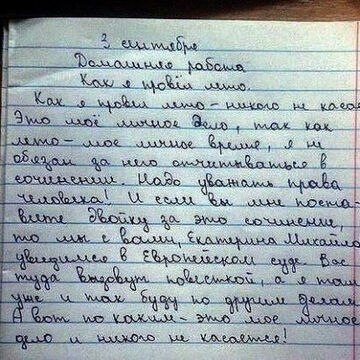 3 сентября
Домашняя работа
Как я провёл лето.
Как я провёл лето - никого не касае
Это моё личное дело, так как
лето - мое личное время, я не
обязан за него отчитываться в
сочинении. Надо уважать права
человека! И если вы мне поста-
вите двойку за это сочинение,
то мы с вами, Екатерина Михайло
увидимся в Европейском суде. Вас
туда вызовут повесткой, а я там
уже и так буду по другим делам
А вот по каким - это мое личное
дело и никого не касается!